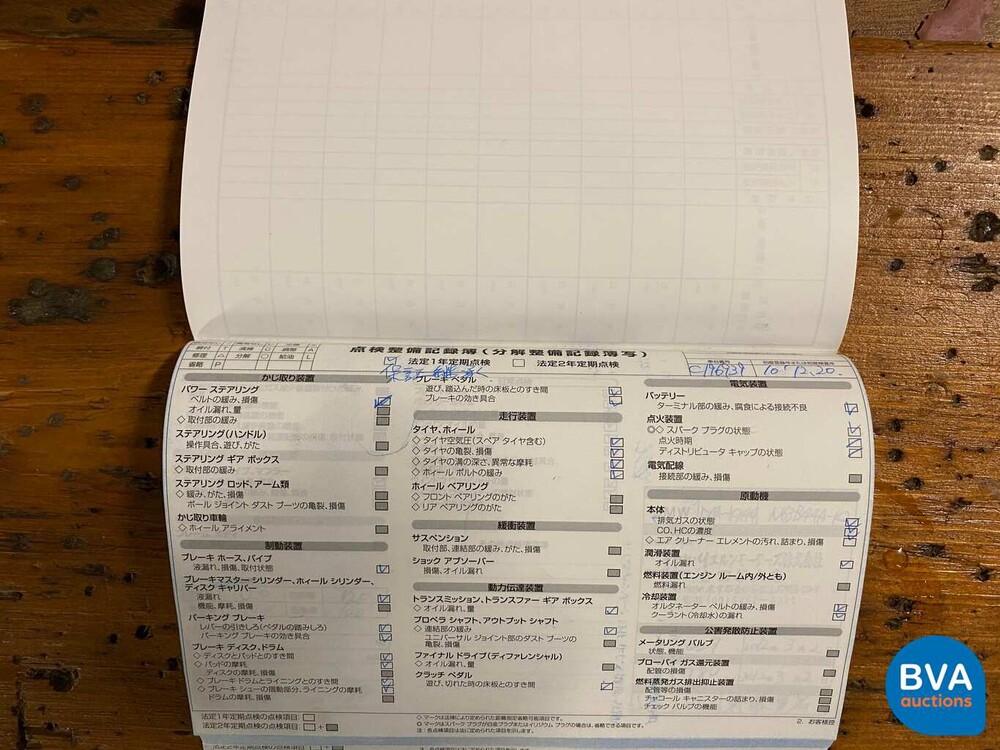 点検整備記録簿(分解整備記録簿写)
修理 △ 分解 ○ 給油 L
省略 P
法定1年定期点検 法定2年定期点検
C196939 10 12.20.
かじ取り装置
パワー ステアリング
ベルトの緩み、損傷
オイル漏れ、量
◇取付部の緩み
ステアリング(ハンドル)
操作具合、遊び、がた
ステアリング ギア ボックス
◇取付部の緩み
ステアリング ロッド、アーム類
◇緩み、がた、損傷
ボール ジョイント ダスト ブーツの亀裂、損傷
かじ取り車輪
◇ホィール アライメント
制動装置
ブレーキ ホース、パイプ
液漏れ、損傷、取付状態
ブレーキマスター シリンダー、ホィール シリンダー、
ディスク キャリパー
液漏れ
機能、摩耗、損傷
パーキング ブレーキ
レバーの引きしろ(ペダルの踏みしろ)
パーキング ブレーキの効き具合
ブレーキ ディスク、ドラム
◇ディスクとパッドとのすき間
◇パッドの摩耗
ディスクの摩耗、損傷
◇ブレーキ ドラムとライニングとのすき間
◇ブレーキ シューの摺動部分、ライニングの摩耗
ドラムの摩耗、損傷
法定1年定期点検の点検項目:
法定2年定期点検の点検項目: +
ブレーキ ペダル
遊び、踏込んだ時の床板とのすき間
ブレーキの効き具合
走行装置
タイヤ、ホィール
◇タイヤ空気圧(スペア タイヤ含む)
◇タイヤの亀裂、損傷
◇タイヤの溝の深さ、異常な摩耗
◇ホィール ボルトの緩み
ホィール ベアリング
◇フロント ベアリングのがた
◇リア ベアリングのがた
緩衝装置
サスペンション
取付部、連結部の緩み、がた、損傷
ショック アブソーバー
損傷、オイル漏れ
動力伝達装置
トランスミッション、トランスファー ギア ボックス
◇オイル漏れ、量
プロペラ シャフト、アウトプット シャフト
◇連結部の緩み
ユニバーサル ジョイント部のダスト ブーツの
亀裂、損傷
ファイナル ドライブ(ディファレンシャル)
◇オイル漏れ、量
クラッチ ペダル
遊び、切れた時の床板とのすき間
電気装置
バッテリー
ターミナル部の緩み、腐食による接続不良
点火装置
◎◇スパーク プラグの状態
点火時期
ディストリビュータ キャップの状態
電気配線
接続部の緩み、損傷
原動機
本体
排気ガスの状態
CO、HCの濃度
◇エア クリーナー エレメントの汚れ、詰まり、損傷
潤滑装置
オイル漏れ
燃料装置(エンジン ルーム内/外とも)
燃料漏れ
冷却装置
オルタネーター ベルトの緩み、損傷
クーラント(冷却水)の漏れ
公害発散防止装置
メータリング バルブ
状態、機能
ブローバイ ガス還元装置
配管の損傷
燃料蒸発ガス排出抑止装置
配管等の損傷
チャコール キャニスターの詰まり、損傷
チェック バルブの機能
2. お客様控
BVA
auctions